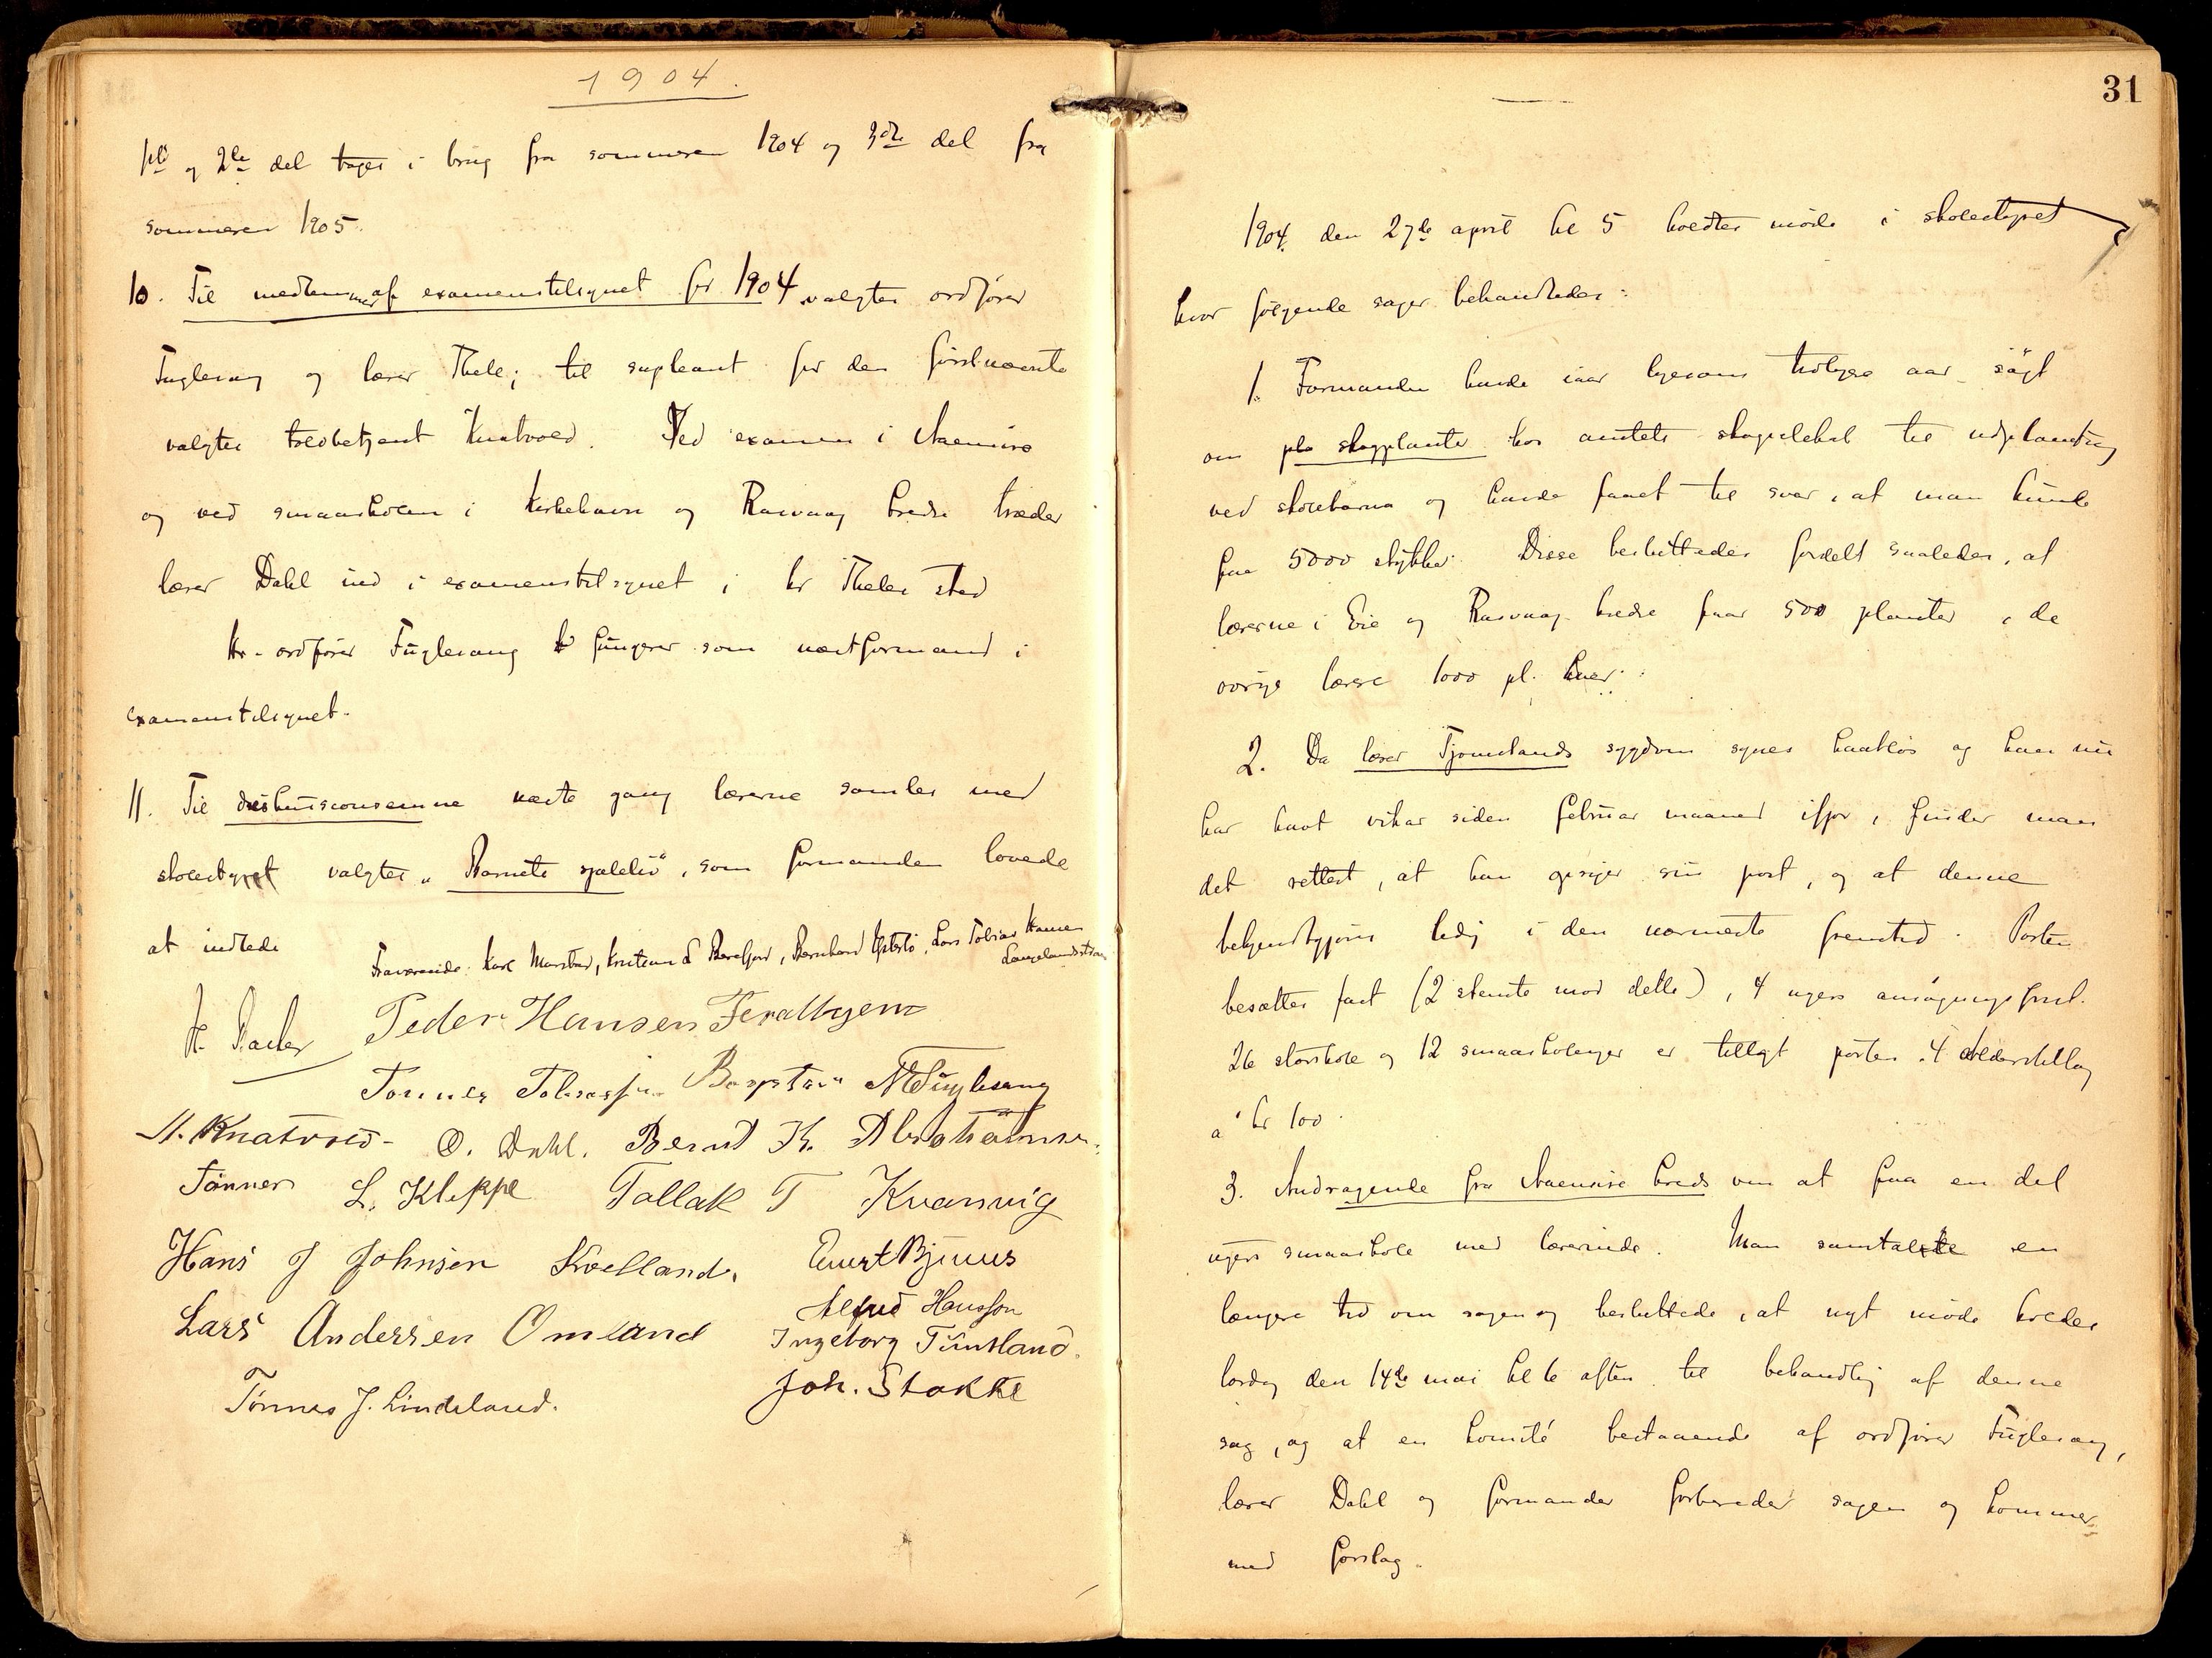 1904.
1ste og 2den del tages i brug fra sommeren 1904 og 3die del fra
sommeren 1905.
10. Til medlemmer af examenstilsynet for 1904 valgtes ordfører
Fuglevang og lærer Thele; til supleant for den førstnævnte
valgtes toldbetjent Knatvold. Ved examen i
og ved smaaskolen i Kirkehavn og Rasvaag kreds træder
lærer Dahl ind i examenstilsynet i hr Theles sted
Hr. ordfører Fuglevang fungerer som næstformand i
examenstilsynet.
11. Til diskusjonsemne næste gang lærerne samles med
skolestyret valgtes „Barnets sjæleliv", som formanden lovede
at indlede
Fraværende: Karl Marstad, Kristian S Berefjord, Bernhard, Lars Tobias Hansen
Peder Hansen
Tønnes Tobiassen Fuglevang
Knatvold - O. Dahl. Bernt K. Abrahamsen.
Tønnes L. Kleppe Tallak T Kvanvig
Hans J Johnsen Kvelland. Enert Bjunes
Alfred Hansson
Lars Anderssen Omland Ingeborg Timsland.
Tønnes J. Lindeland. Joh. Stakke
31
1904 den 27de april kl 5 holdtes møde i skolestyret
hvor følgende sager behandledes:
1. Formanden havde iaar ligesom tidligere aar søgt
om pla skogplanter hos amtets skogselskab til udplantning
ved skolebarna og havde faaet til svar, at man kunde
faa 5000 stykker. Disse besluttedes fordelt saaledes, at
lærerne i Eie og Rasvaag kredse faar 500 planter, de
øvrige lærere 1000 pl. hver.
2. Da lærer Tjomslands sygdom synes haabløs og han nu
har havt vikar siden februar maaned ifjor, finder man
det rettest, at han opsiger sin post, og at denne
bekjendtgjøres ledig i den nærmeste fremtid. Posten
besættes fast (2 stemte mod dette), 4 ugers ansøgningsfrist.
26 storskole og 12 smaaskoleuger er tillagt posten. 4 alderstillæg
à kr 100.
3. Andragende fra kreds om at faa en del
ugers smaaskole med lærerinde. Man samtalte en
længere tid om sagen og besluttede, at nyt møde holdes
lørdag den 14de mai kl 6 aften til behandling af denne
sag, og at en komité bestaaende af ordfører Fuglevang,
lærer Dahl og formanden forbereder sagen og kommer
med forslag.